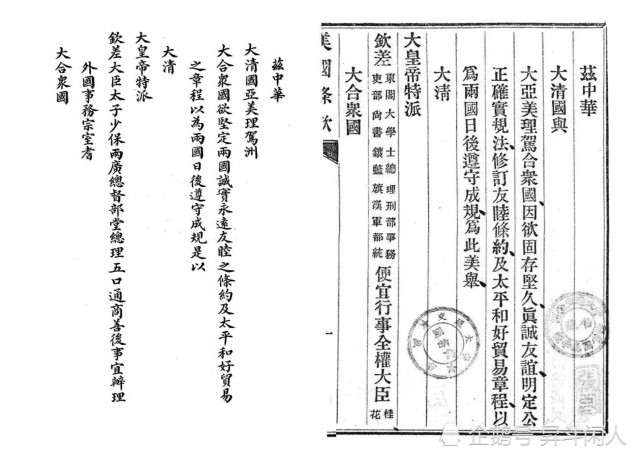 茲中華
大清國與
大亞美理駕合衆國因欲固存堅久眞誠友誼明定公
正確實規法修訂友睦條約及太平和好貿易章程以
爲兩國日後遵守成規爲此美舉
大淸
大皇帝特派
欽差東閣大學士總理刑部事務吏部尙書鑲藍旗漢軍都統便宜行事全權大臣桂花
大合衆國
美國條欵
一
茲中華
大清國亞美理駕洲
大合衆國欲堅定兩國誠實永遠友睦之條約及太平和好貿易
之章程以為兩國日後遵守成規是以
大清
大皇帝特派
欽差大臣太子少保兩廣總督部堂總理五口通商善後事宜辦理
外國事務宗室耆
大合衆國
企鹅号 昇斗闲人